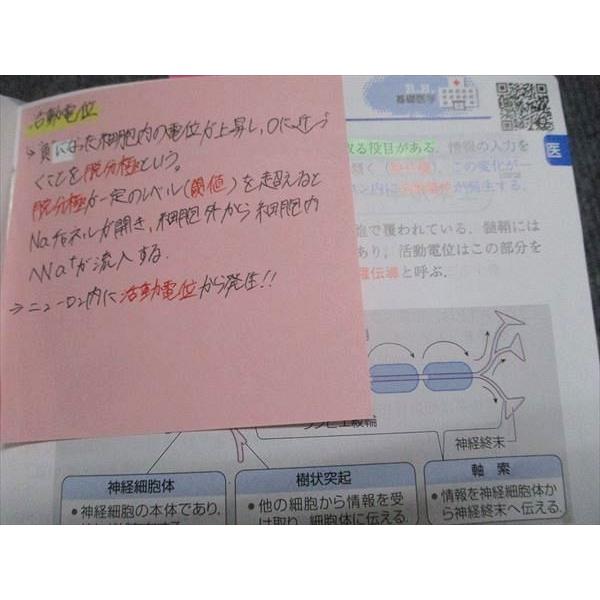 活動電位
→負になった細胞内の電位が上昇し、0に近づ
くことを脱分極という。
脱分極が一定のレベル(閾値)を超えると
Naチャネルが開き、細胞外から細胞内
へNa⁺が流入する.
→ニューロン内に活動電位が発生!!
基礎医学
医
取る役目がある. 情報の入力を
この変化が一
ン内に活動電位が発生する.
で覆われている. 髄鞘には
あり, 活動電位はこの部分を
躍伝導と呼ぶ.
ランビエ絞輪
神経終末
神経細胞体
•神経細胞の本体であり,
樹状突起
•他の細胞から情報を受
け取り, 細胞体に伝える.
軸 索
•情報を神経細胞体か
ら神経終末へ伝える.